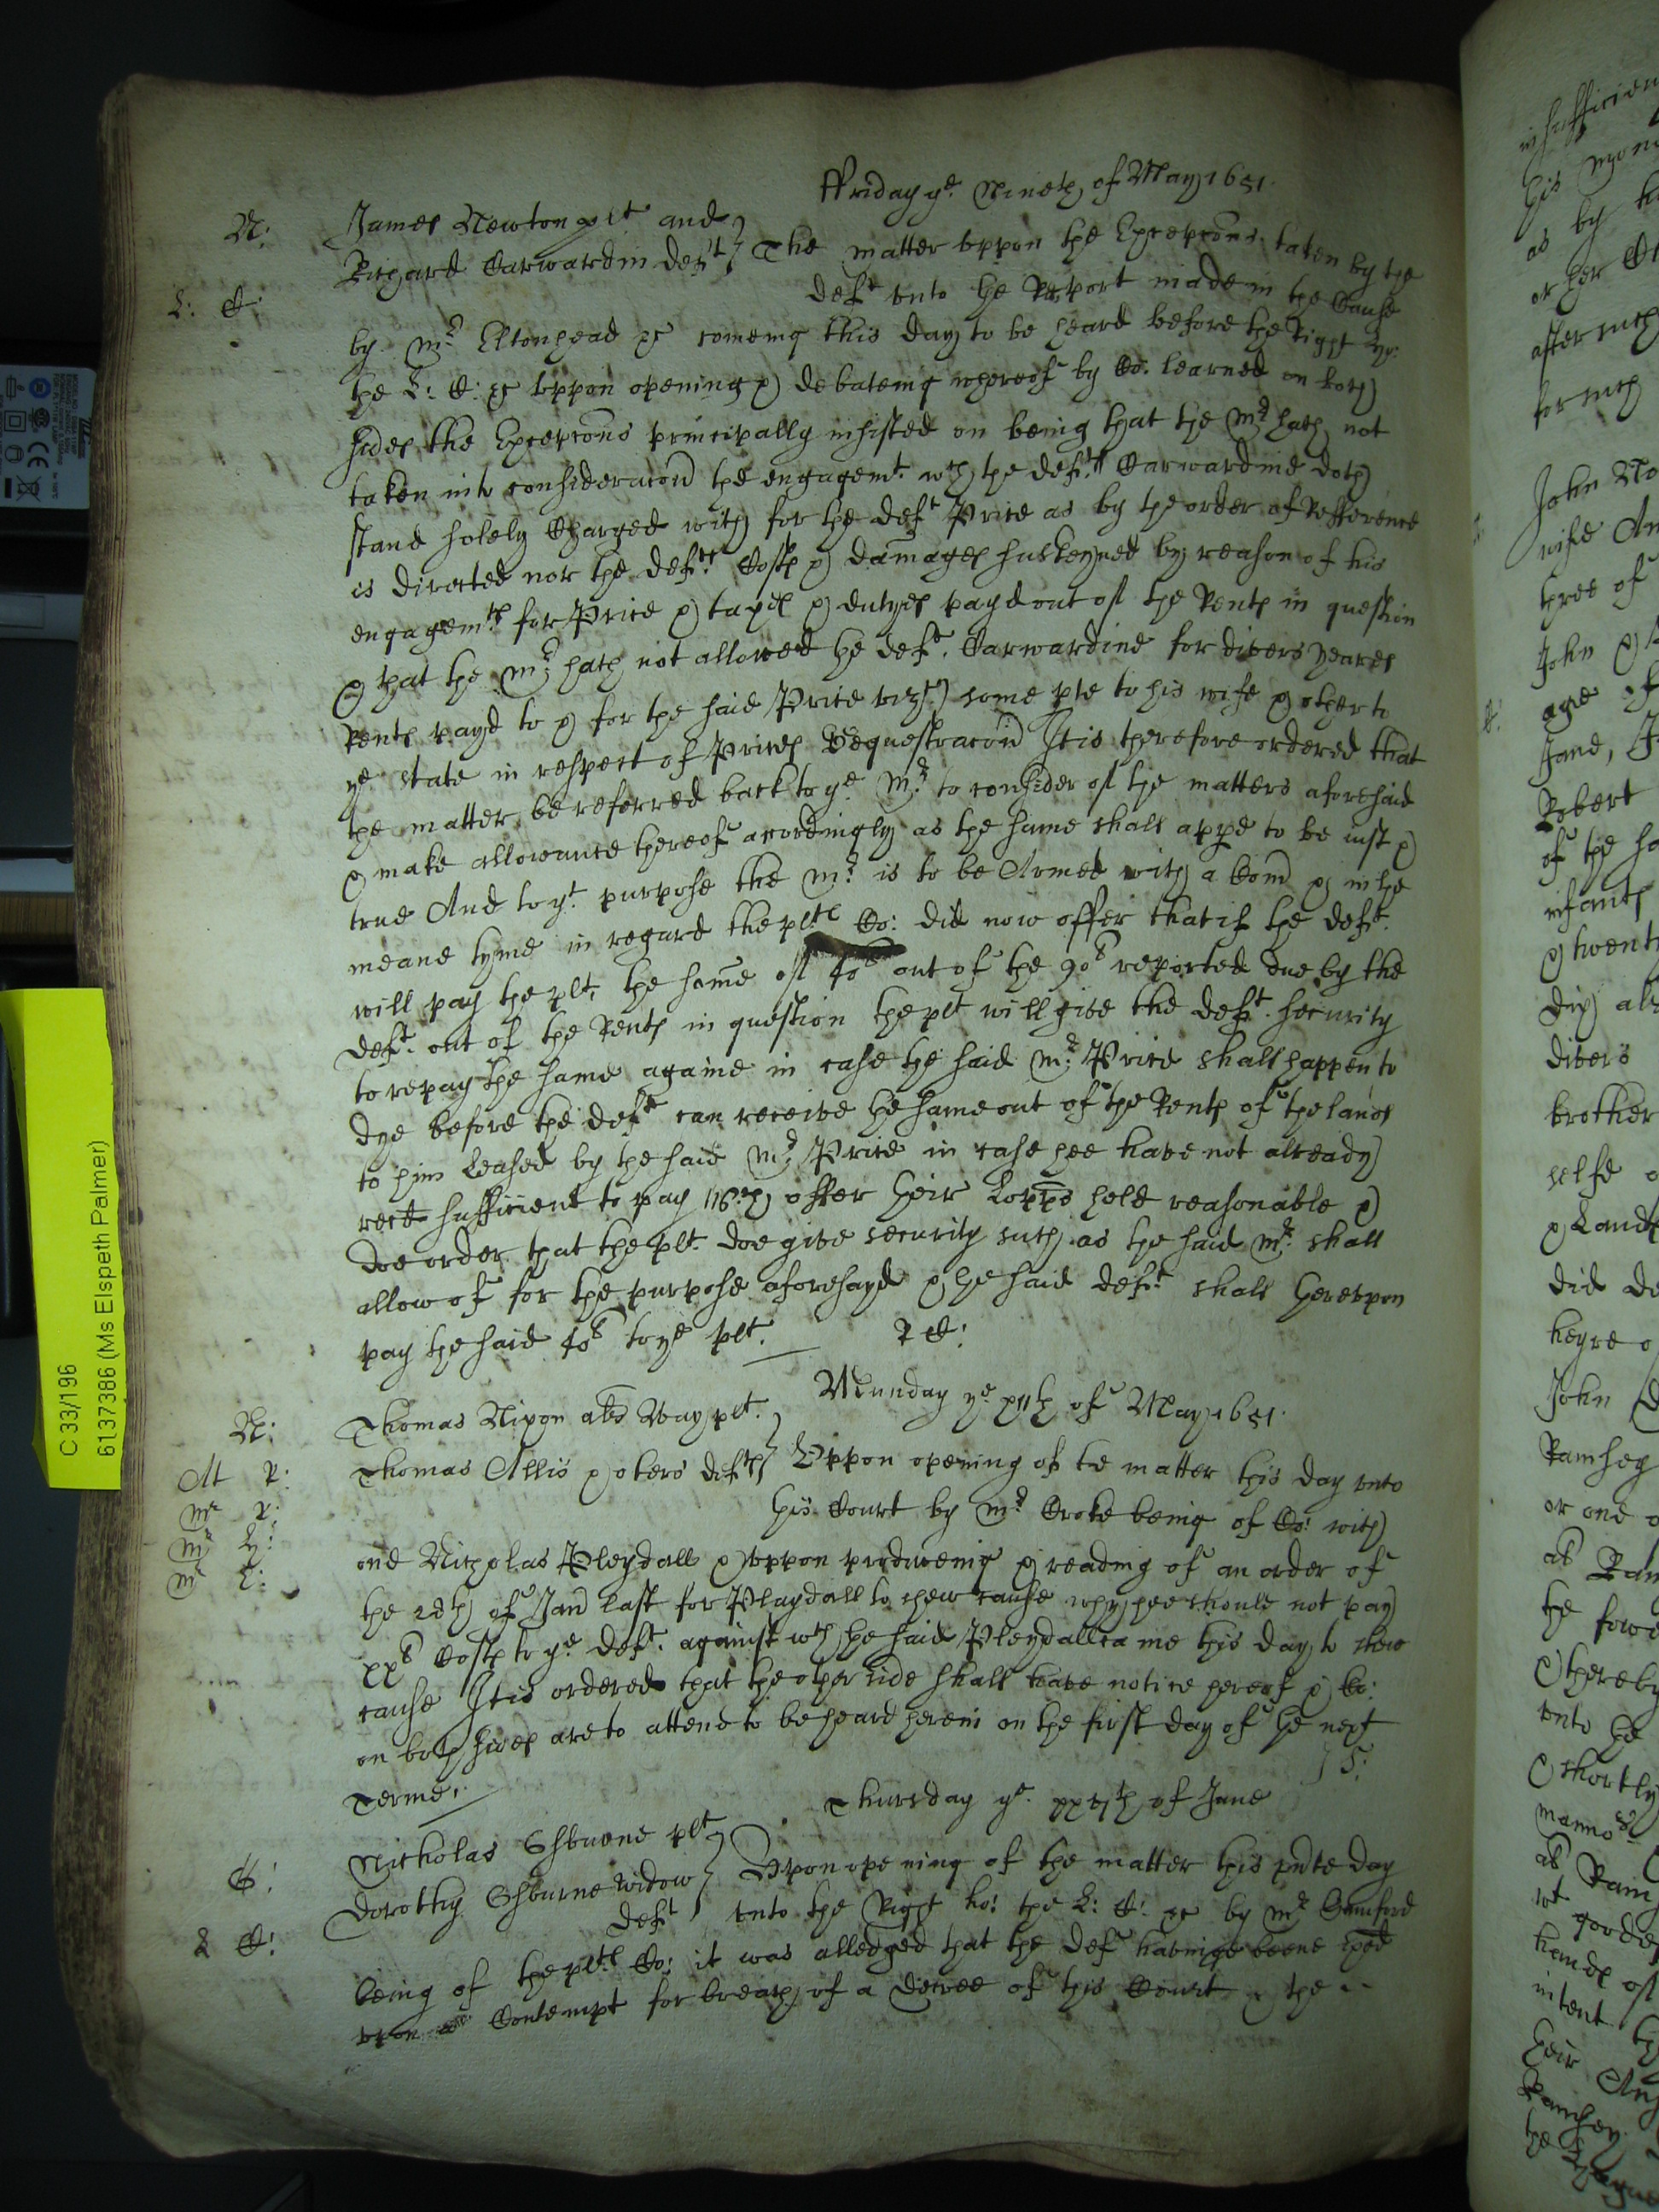 ffriday ye Nineth of May 1651.
N: James Newton plt and
Richard Carwardin deft The matter vppon the Excepcons taken by the
L: C: deft vnto the Report made in the Cause
by mr Eltonhead &c comeing this day to be heard before the right ho:
the L: C: &c vppon opening & debateing whereof by Co: learned on both
sides the Excepcons principally insisted on being that the mr hath not
taken into consideracon the engagemt wch the deft Carwardine doth
stand solely Charged with for the deft Price as by the order of Refference
is directed nor the defts Costs & damages susteyned by reason of his
engagemts for Price & taxes & dutyes payd out of the Rents in question
& that the mr hath not allowed the deft Carwardine for divers yeares
Rents payd to & for the said Price vizt some pte to his wife & other to
ye state in respect of Prices Sequestracon It is therefore ordered that
the matter be referred back to ye mr to consider of the matters aforesaid
& make allowance thereof acordingly as the same shall appe to be iust &
true And to yt purpose the mr is to be Armed with a Comi & in the
meane tyme in regard the plts Co: did now offer that if the deft
will pay the plt the some of 40l out of the 90l reported due by the
deft out of the Rents in question the plt will give the deft security
to repay the same againe in case the said mr Price shall happen to
dye before the deft can receive the same out of the Rents of the lands
to him leased by the said mr Price in case hee have not already
recd sufficient to pay wch offer their Lopps hold reasonable &
doe order that the plt doe give security such as the said mr shall
allow of for the purpose aforesayd & the said deft shall therevpon
pay the said 40l to ye plt. R C:
Munday ye xijth of May 1651.
N: Thomas Nixon als Way plt.
At R: Thomas Allis & others defts Vppon opening of the matter this day vnto
mr R: this Court by mr Croke being of Co: with
mr H: one Nicholas Pleydall & vppon produceing & reading of an order of
mr L: the 28th of Jan last for Playdall to shew cause why hee should not pay
xxs Costs to ye deft. against wch the said Pleydall came this day to shew
cause It is ordered that the other side shall have notice hereof & Co:
on both sides are to attend to be heard herein on the first day of the next
Terme. J S:
Thursday ye xxvjth of June
Nicholas Osburne plt
O: Dorothy Osburne widow Vpon opening of the matter this pnte day
L C: deft vnto the Right ho: the L: C: &c by mr
being of the plts Co: it was alledged that the deft haveinge beene
vpon Contempt for breach of a decree of this Court & the
C 33/196
6137386 (Ms Elspeth Palmer)
insufficien
his
as by
or her
after such
for such
John
wife An
three of
John &
age of
Jane,
Robert
of the
infants
& twent
divers
brother
selfe
& Lands
did de
heyre o
John
Ramsey
or one o
at
the
& thereby
vnto the
& shortly
mannor
at
goodes
hands of
intent
their
Ramsey